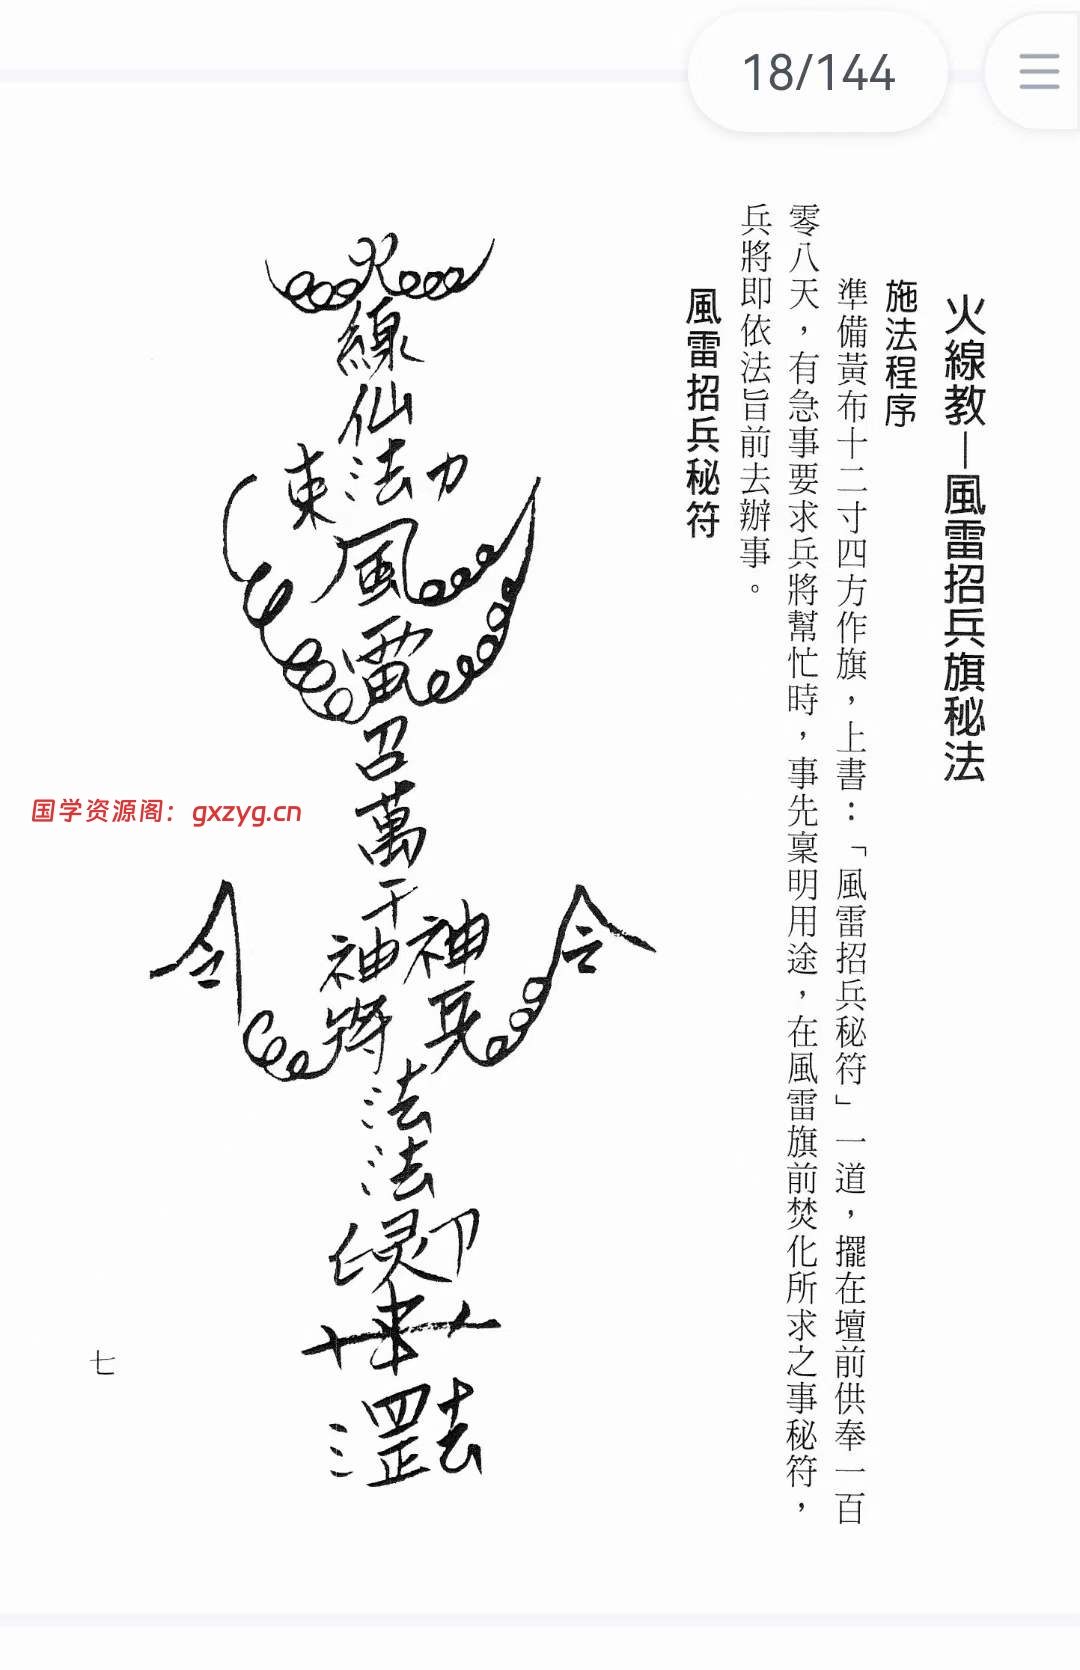 18/144
火線教—風雷招兵旗秘法
施法程序
準備黃布十二寸四方作旗，上書：「風雷招兵秘符」一道，擺在壇前供奉一百
零八天，有急事要求兵將幫忙時，事先稟明用途，在風雷旗前焚化所求之事秘符，
兵將即依法旨前去辦事。
風雷招兵秘符
火
線
仙
法力
東
風
雷
召
萬
千
神兵
神將
令
令
法
法
国学资源阁：gxzyg.cn
七